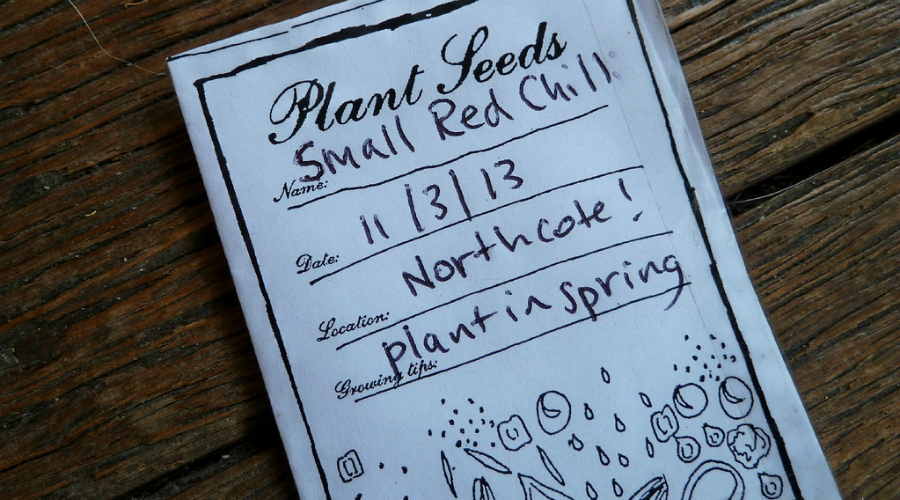 Plant Seeds
Small Red Chilli
Name:
11/3/13
Date:
Northcote!
Location:
plant in spring
Growing tips: